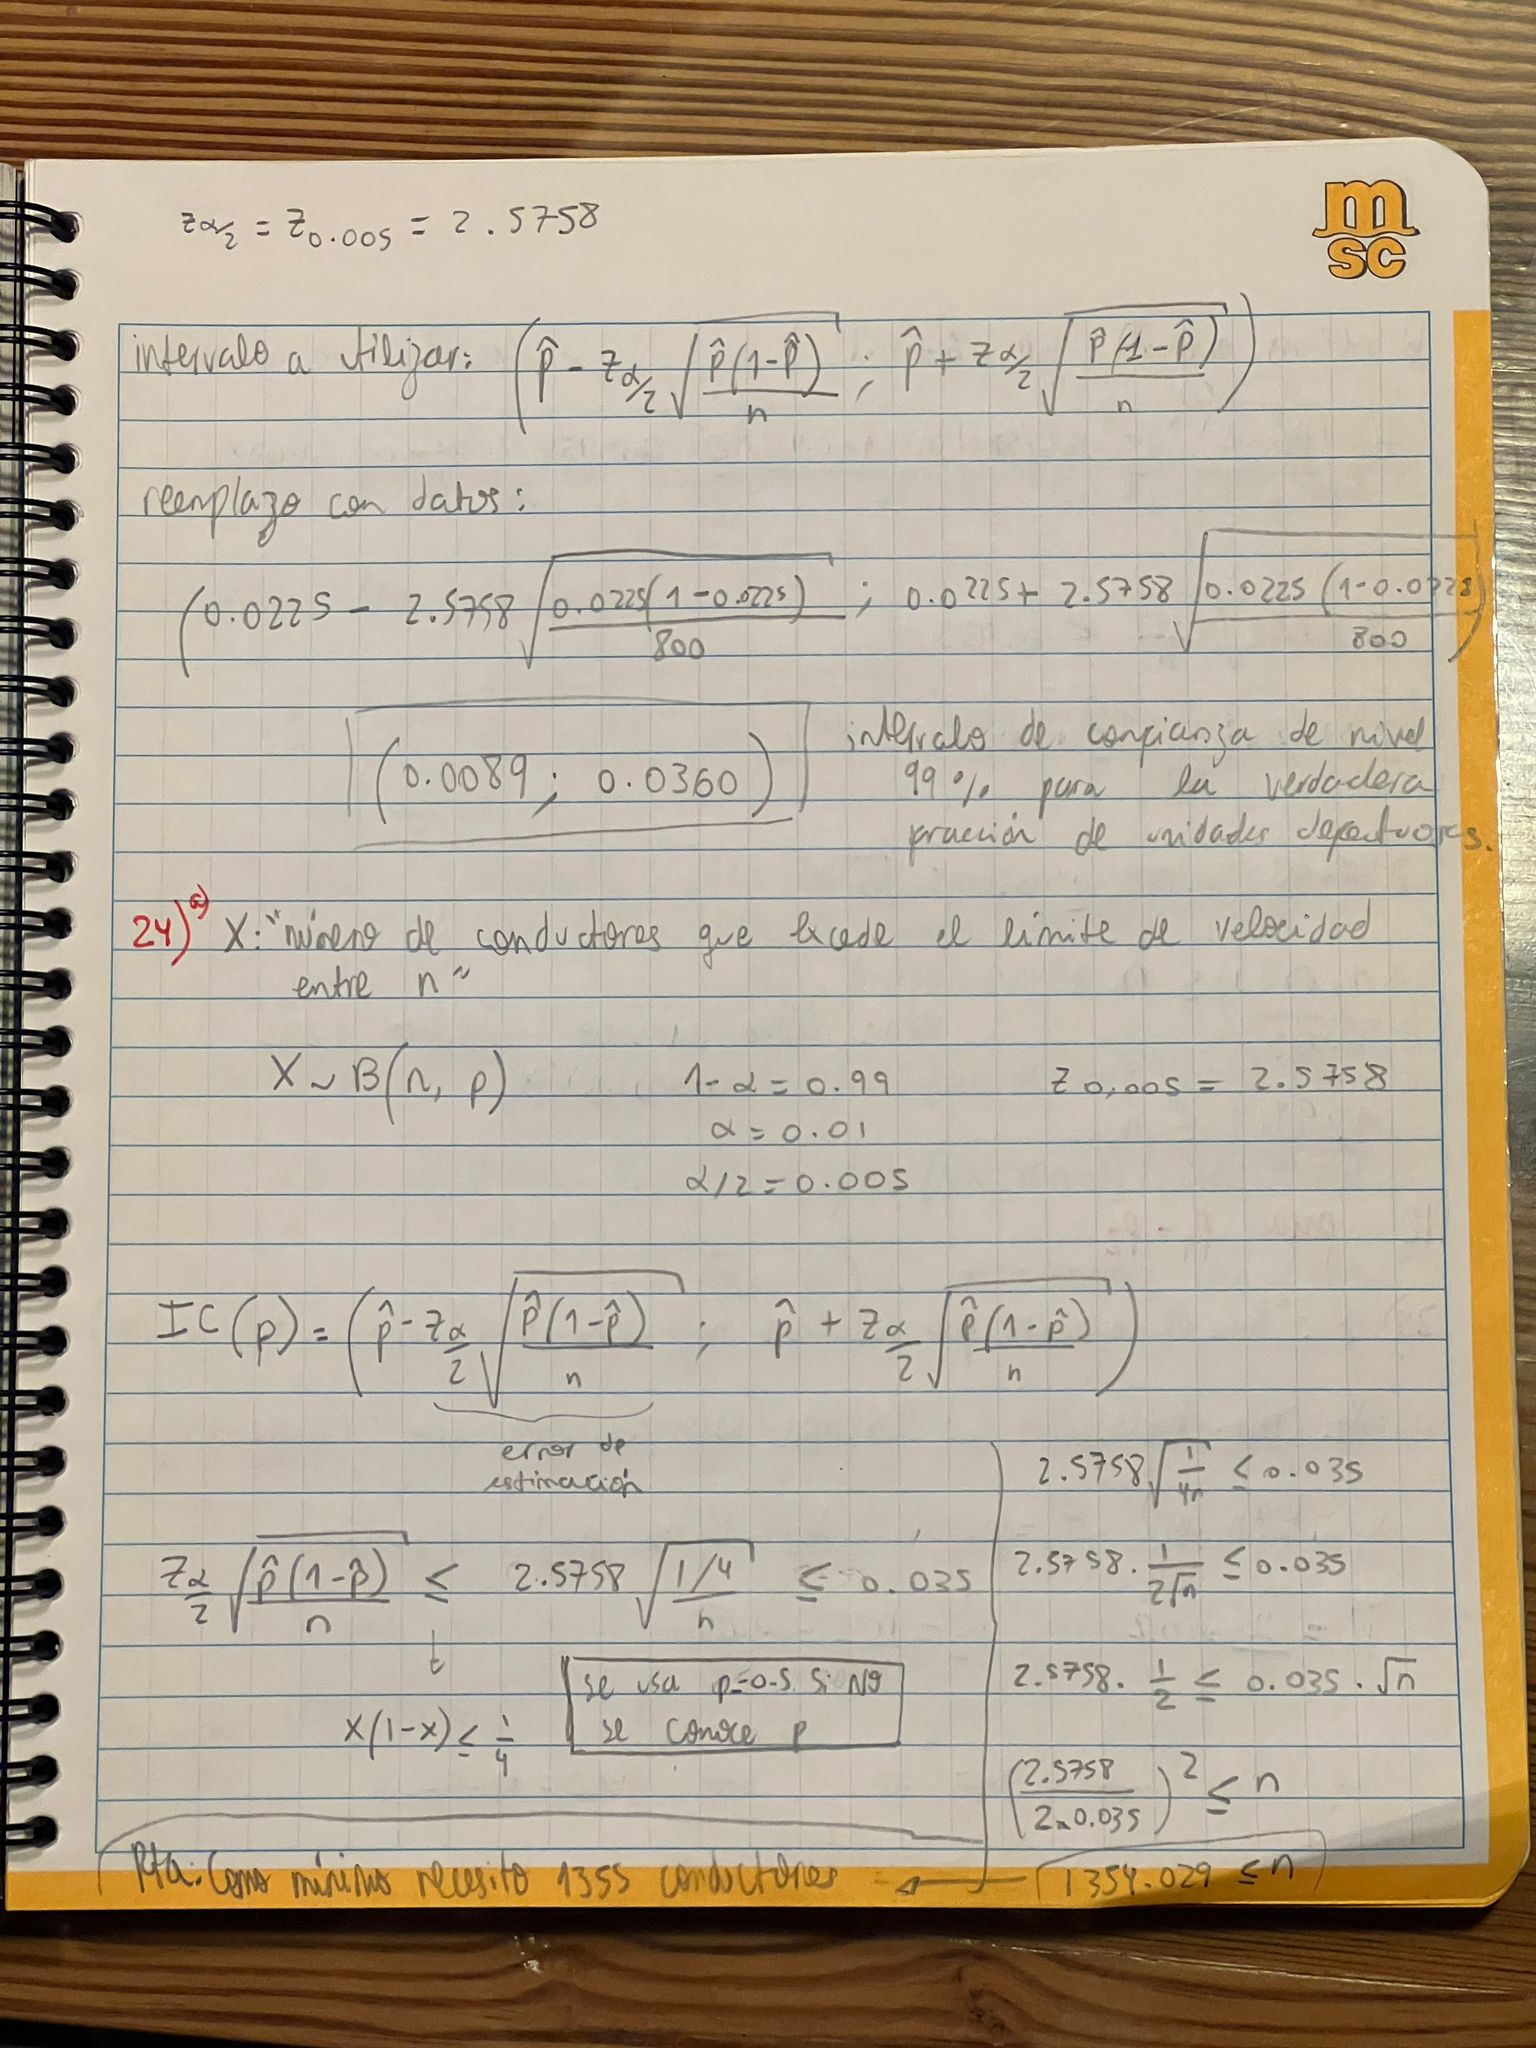 z α/2 = Z 0.005 = 2.5758
msc
intervalo a utilizar: (p̂ - z α/2 √(p̂(1-p̂)/n) ; p̂ + z α/2 √(p̂(1-p̂)/n))
reemplazo con datos:
(0.0225 - 2.5758 √(0.0225(1-0.0225)/800) ; 0.0225 + 2.5758 √(0.0225(1-0.0225)/800))
(0.0089 ; 0.0360) intervalo de confianza de nivel
99% para la verdadera
fracción de unidades defectuosas.
24) a) X: "número de conductores que excede el límite de velocidad
entre n"
X ~ B(n, p) 1-α = 0.99 z 0,005 = 2.5758
α = 0.01
α/2 = 0.005
IC(p) = (p̂ - z α/2 √(p̂(1-p̂)/n) ; p̂ + z α/2 √(p̂(1-p̂)/n))
error de
estimación
z α/2 √(p̂(1-p̂)/n) ≤ 2.5758 √((1/4)/n) ≤ 0.035
x(1-x) ≤ 1/4
se usa p=0.5 si no
se conoce p
2.5758 √(1/4n) ≤ 0.035
2.5758 . 1/(2√n) ≤ 0.035
2.5758 . 1/2 ≤ 0.035 . √n
(2.5758/(2×0.035))² ≤ n
1354.029 ≤ n
Rta: Como mínimo necesito 1355 conductores